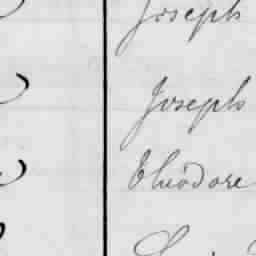 Joseph
Joseph
Theodore